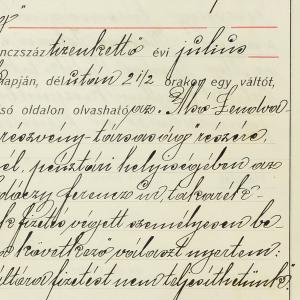 nczszáz tizenkettő évi július
napján, délután 2 1/2 órakor egy váltót,
só oldalon olvasható az. Alsó-Lendva
részvény-társaság" részére,
pénztári helyiségében az
ferencz úr, takarék-
k fizetés végett személyesen be-
következő választ nyertem:
fizetést nem teljesíthetünk".